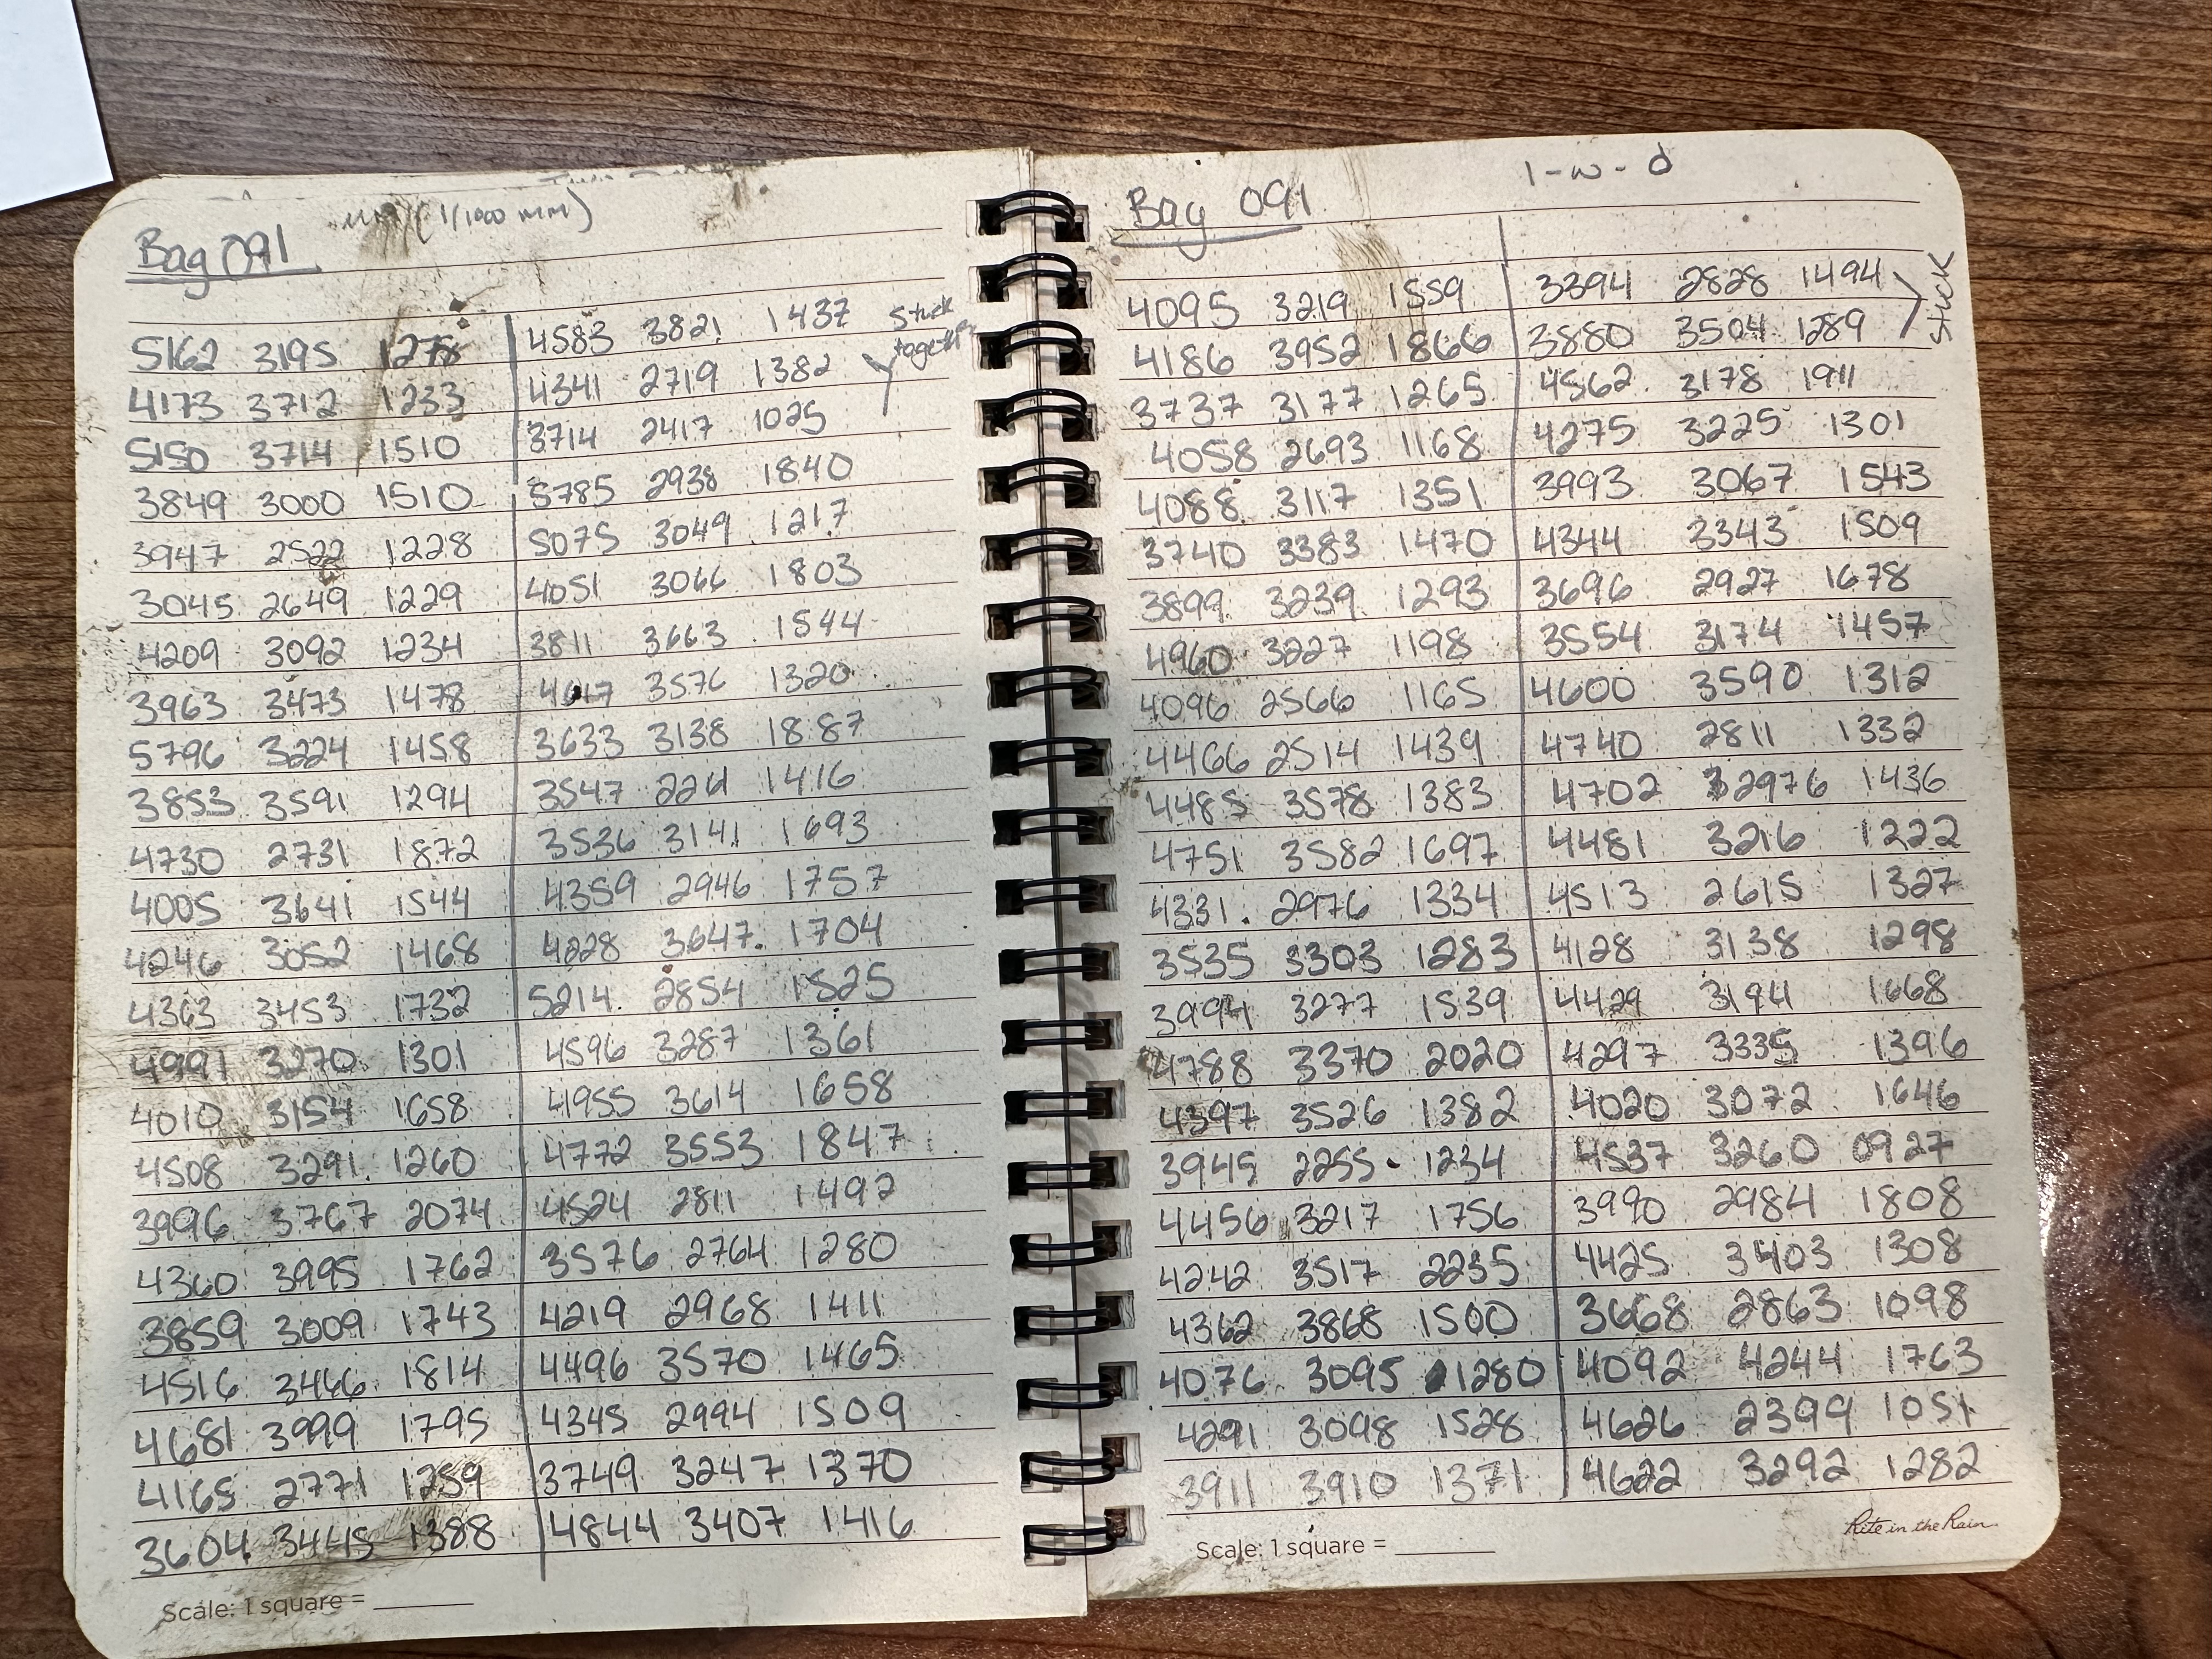 Bag 091 (1/1000 mm)
5162 3195 1278 4583 3821 1437 Stuck
4173 3712 1233 4341 2719 1382 together
5150 3714 1510 3714 2417 1025
3849 3000 1510 3785 2938 1840
3947 2522 1228 5075 3049 1217
3045 2649 1229 4051 3066 1803
4209 3092 1234 3811 3663 1544
3963 3473 1478 4647 3576 1320
5796 3224 1458 3633 3138 1887
3853 3591 1294 3547 1416
4730 2731 1872 3536 3141 1693
4005 3641 1544 4359 2946 1757
4046 3052 1468 4228 3647 1704
4363 3453 1732 5214 2854 1525
4991 3270 1301 4596 3287 1361
4010 3154 1658 4955 3614 1658
4508 3291 1260 4772 3553 1847
3996 3767 2074 4524 2811 1492
4360 3995 1762 3576 2764 1280
3859 3009 1743 4219 2968 1411
4516 3446 1814 4496 3570 1465
4681 3999 1795 4345 2994 1509
4165 2771 1259 3749 3247 1370
3604 3445 1388 4844 3407 1416
Scale: 1 square =
Bag 091 1-w-d
4095 3219 1559 3394 2828 1494 Stuck
4186 3952 1866 3880 3504 1289
3737 3177 1265 4562 3178 1911
4058 2693 1168 4275 3225 1301
4088 3117 1351 3993 3067 1543
3740 3383 1470 4344 3343 1509
3899 3239 1293 3696 2927 1678
4960 3227 1198 3554 3174 1457
4096 2566 1165 4600 3590 1312
4466 2514 1439 4740 2811 1332
4485 3578 1383 4702 2976 1436
4751 3582 1697 4481 3216 1222
4331 2976 1334 4513 2615 1327
3535 3303 1283 4128 3138 1298
3991 3277 1539 4429 3194 1668
4788 3370 2020 4297 3335 1396
4397 3526 1382 4020 3072 1646
3945 2255 1234 4537 3260 0927
4456 3217 1756 3990 2984 1808
4242 3517 2235 4425 3403 1308
4362 3868 1500 3468 2863 1098
4076 3095 1280 4092 4244 1763
4291 3098 1528 4626 2394 1051
3911 3910 1371 4622 3292 1282
Scale: 1 square =
Rite in the Rain